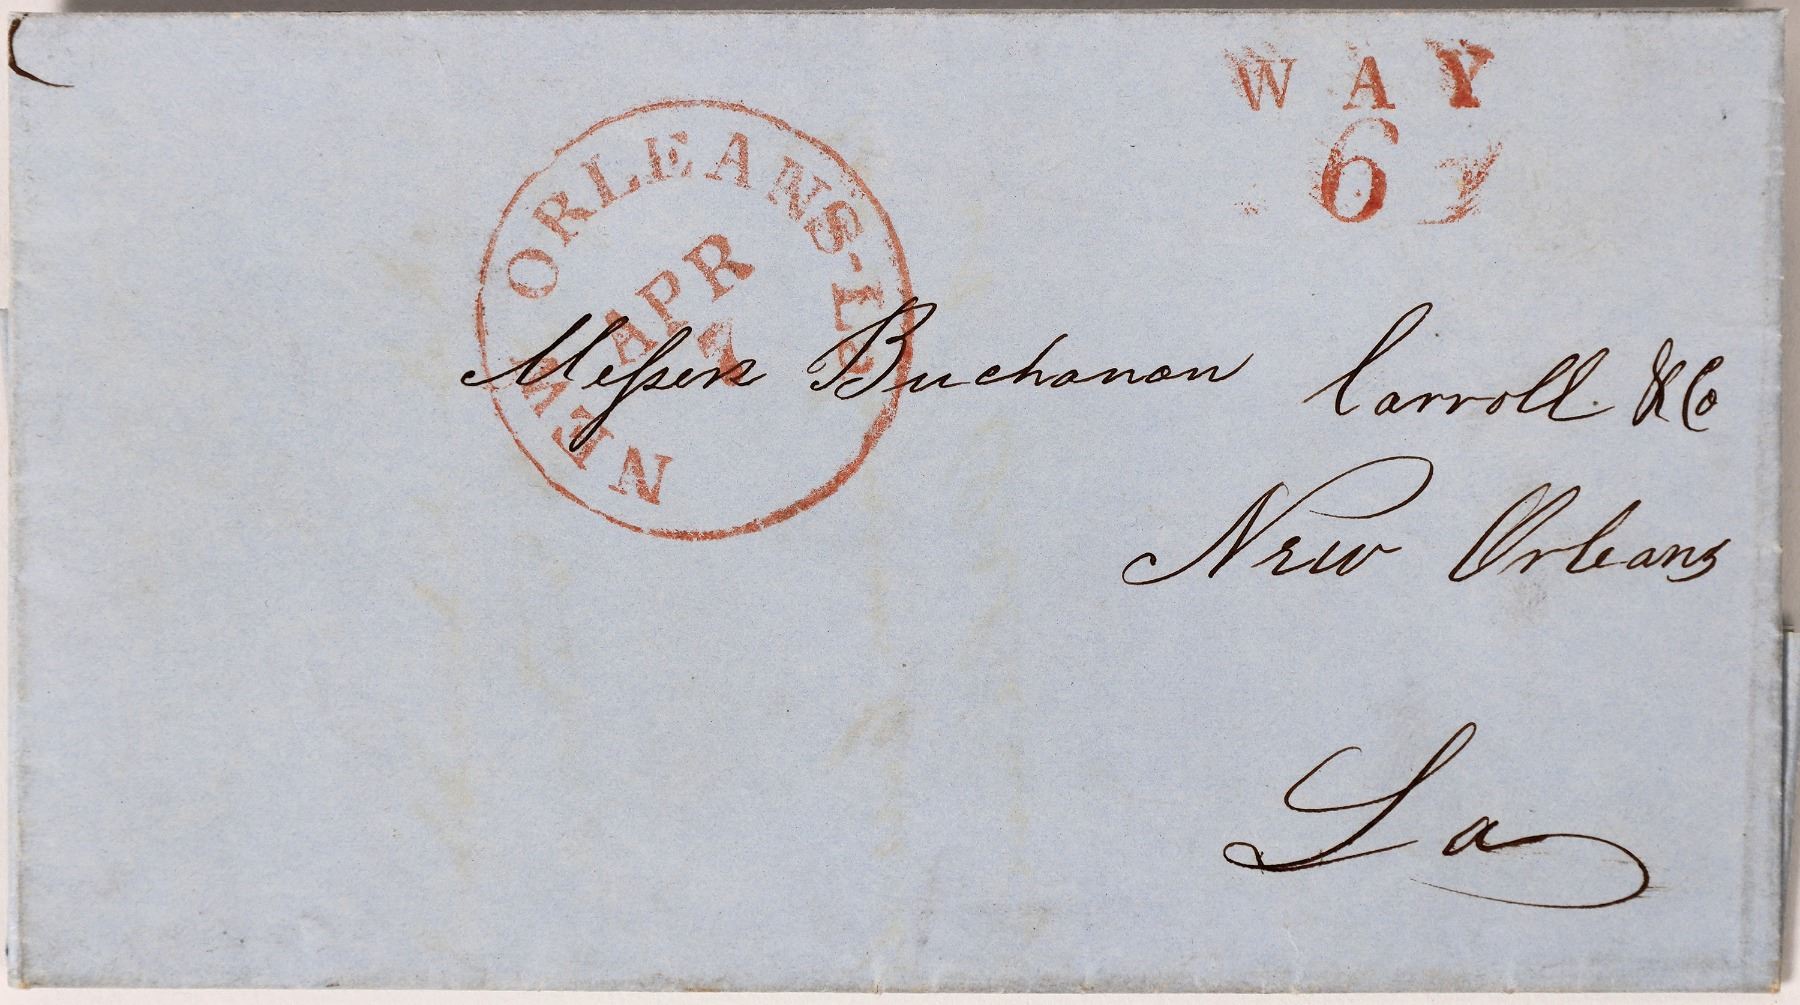 WAY
6
NEW ORLEANS-La
APR
7
Messrs Buchanan Carroll &Co
New Orleans
La